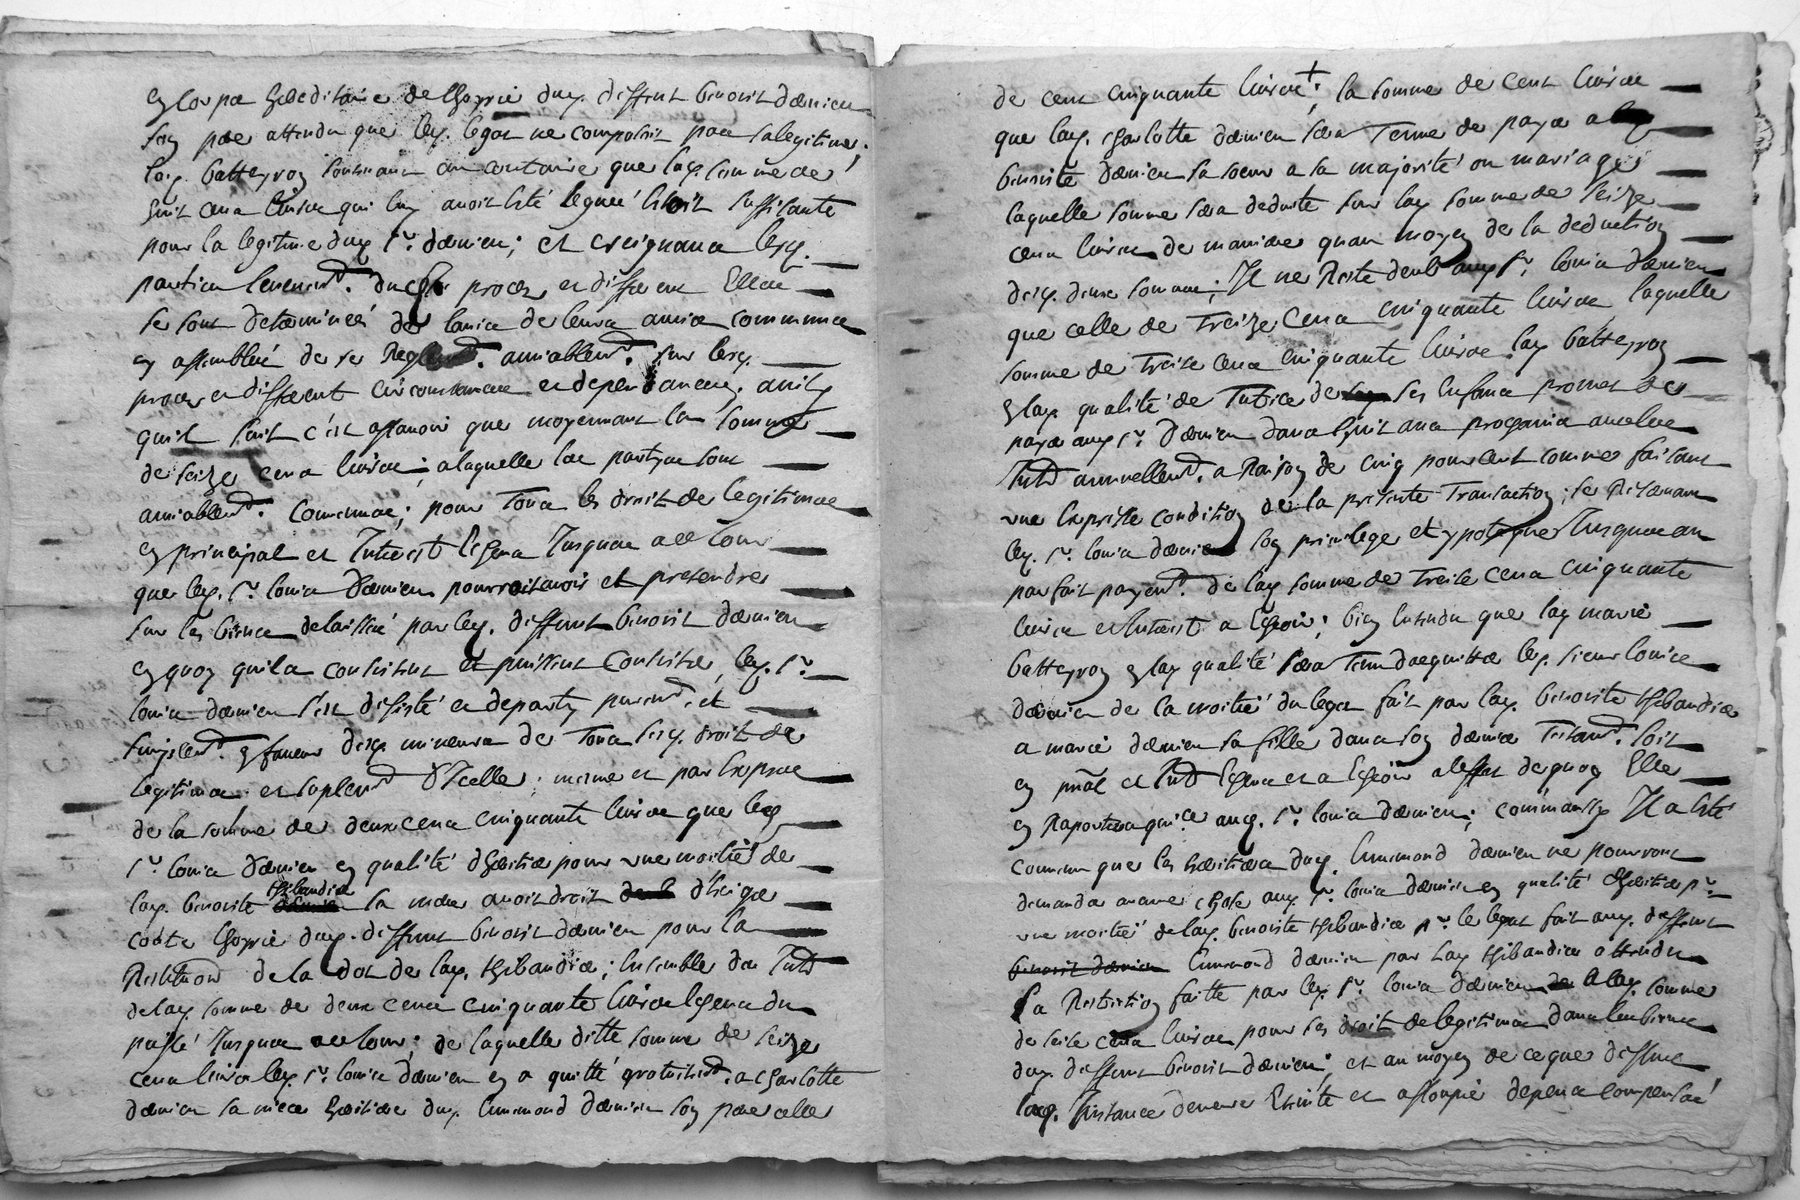 en corps hereditaire de lhoyrie dud. deffunt benoist damien
son pere attendu que led. legat ne composoit pas sa legitime;
lad. batteyron soutenant au contraire que lad. somme de
huit cens livres qui luy avoit été legué étoit suffisante
pour la legitime dud. sr. damien; et craignans lesd.
parties levenemt. dud. proces et different Elles
se sont determinées de lavis de leurs amis communs
en assemblée de se Reglemt. amiablemt. sur lesd.
proces et different circonstances et dependances, ainsy
quil suit c'est assavoir que moyennant la somme
de seize cens livres; a laquelle les partyes sont
amiablemt. convenues; pour Tous les droit de legitimes
en principal et Interest Echeus Jusques a ce Jour
que led. sr. louis damien pourroit avoir et pretendre
sur les biens delaissés par led. deffunt benoist damien
en quoy quils consistent et puissent consister, led. sr.
louis damien s'est desisté et departy puremt. et
simplemt. en faveur desd. mineurs de Tous sesd. droit de
legitimes et suplemt. d'Icelle; mesme et par Expres
de la somme de deux cens cinquante livres que led.
sr. louis damien en qualité dheritier pour une moitié de
lad. benoite thibaudier sa mere avoit droit d'Exiger
contre lhoyrie dud. deffunt benoist damien pour la
Restituon de la dot de lad. thibaudier; Ensemble des Intts
de lad. somme de deux cens cinquante livres Echeus du
passé Jusques a ce Jour; de laquelle ditte somme de seize
cens livres led. sr. louis damien en a quitté gratuitemt. a charlotte
damien sa niece heritiere dud. Ennemond damien son pere celle
de cent cinquante livres +; la somme de cent livres
que lad. charlotte damien sera Tenue de payer a
benoite damien sa soeur a sa majorité ou mariage;
laquelle somme sera deduite sur lad. somme de seize
cens livres de maniere quau moyen de la deduction
desd. deux sommes; Il ne Reste deub aud. sr. louis damien
que celle de Treize Cens cinquante livres laquelle
somme de treize cens cinquante livres lad. batteyron
en lad. qualité de Tutrice de ses Enfans promet de
payer aud. sr. damien dans huit ans prochains avec les
Intts annuellemt. a Raison de cinq pour cent comme faisant
une Expresse condition de la presente Transaction; se Reservant
led. sr. louis damien son privilege et ypoteque Jusques au
parfait payemt. de lad. somme de treize cens cinquante
livres et Interest a Echeoir; bien Entendu que lad. marie
batteyron en lad. qualité sera Tenu dacquitter led. sieur louis
damien de la moitié du legat fait par lad. benoite thibaudier
a marie damien sa fille dans son dernier Testamt. soit
en prinal et Intts Echeus et a Echeoir a leffet de quoy Elle
en Raportera quitce aud. sr. louis damien; comm'aussy Il a été
convenu que les heritiers dud. Ennemond damien ne pourront
demander aucune chose aud. sr. louis damien en qualité dheritier pr.
une moitié de lad. benoite thibaudier pr. le legat fait aud. deffunt
Ennemond damien par lad. thibaudier attendu
la Restriction faitte par led. sr. louis damien a lad. somme
de seize cens livres pour ses droit de legitimes dans les biens
dud. deffunt benoist damien; et au moyen de ce que dessus
lad. Instance demeure Eteinte et assoupie depens compensés